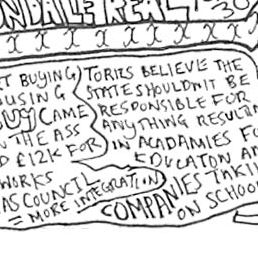 NDALE REAL
30
T BUYING
USING
BUY CAME
N THE ASS
D £12K FOR
WORKS
AS COUNCIL
= MORE INTEGRATION
TORIES BELIEVE THE
STATE SHOULDN'T BE
RESPONSIBLE FOR
ANYTHING RESULTIN
IN ACADAMIES FO
EDUCATON AN
COMPANIES TAKIN
ON SCHOO